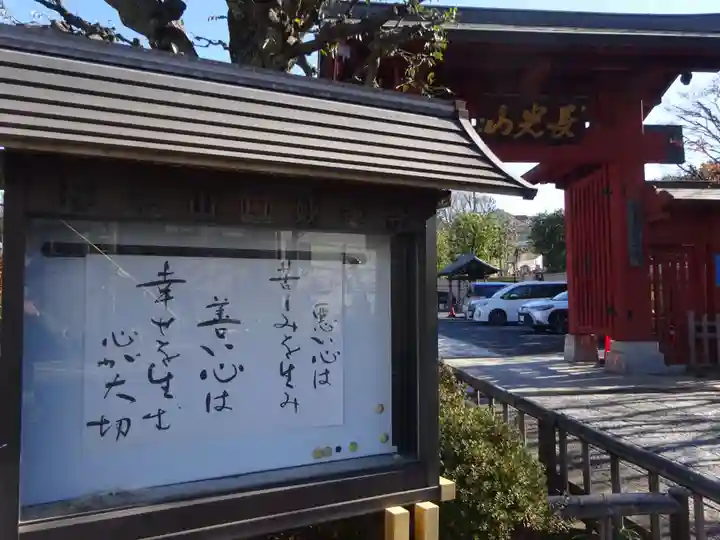 長光山
悪い心は
苦しみを生み
善い心は
幸せを生む
心が大切